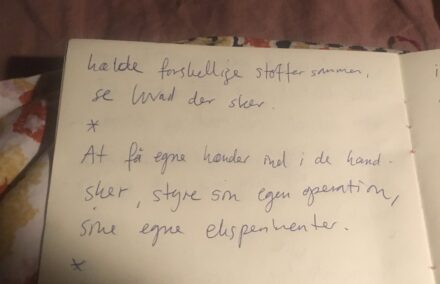 hælde forskellige stoffer sammen,
se hvad der sker.
*
At få egne hænder ind i de hand-
sker, styre sin egen operation,
sine egne eksperimenter.
*